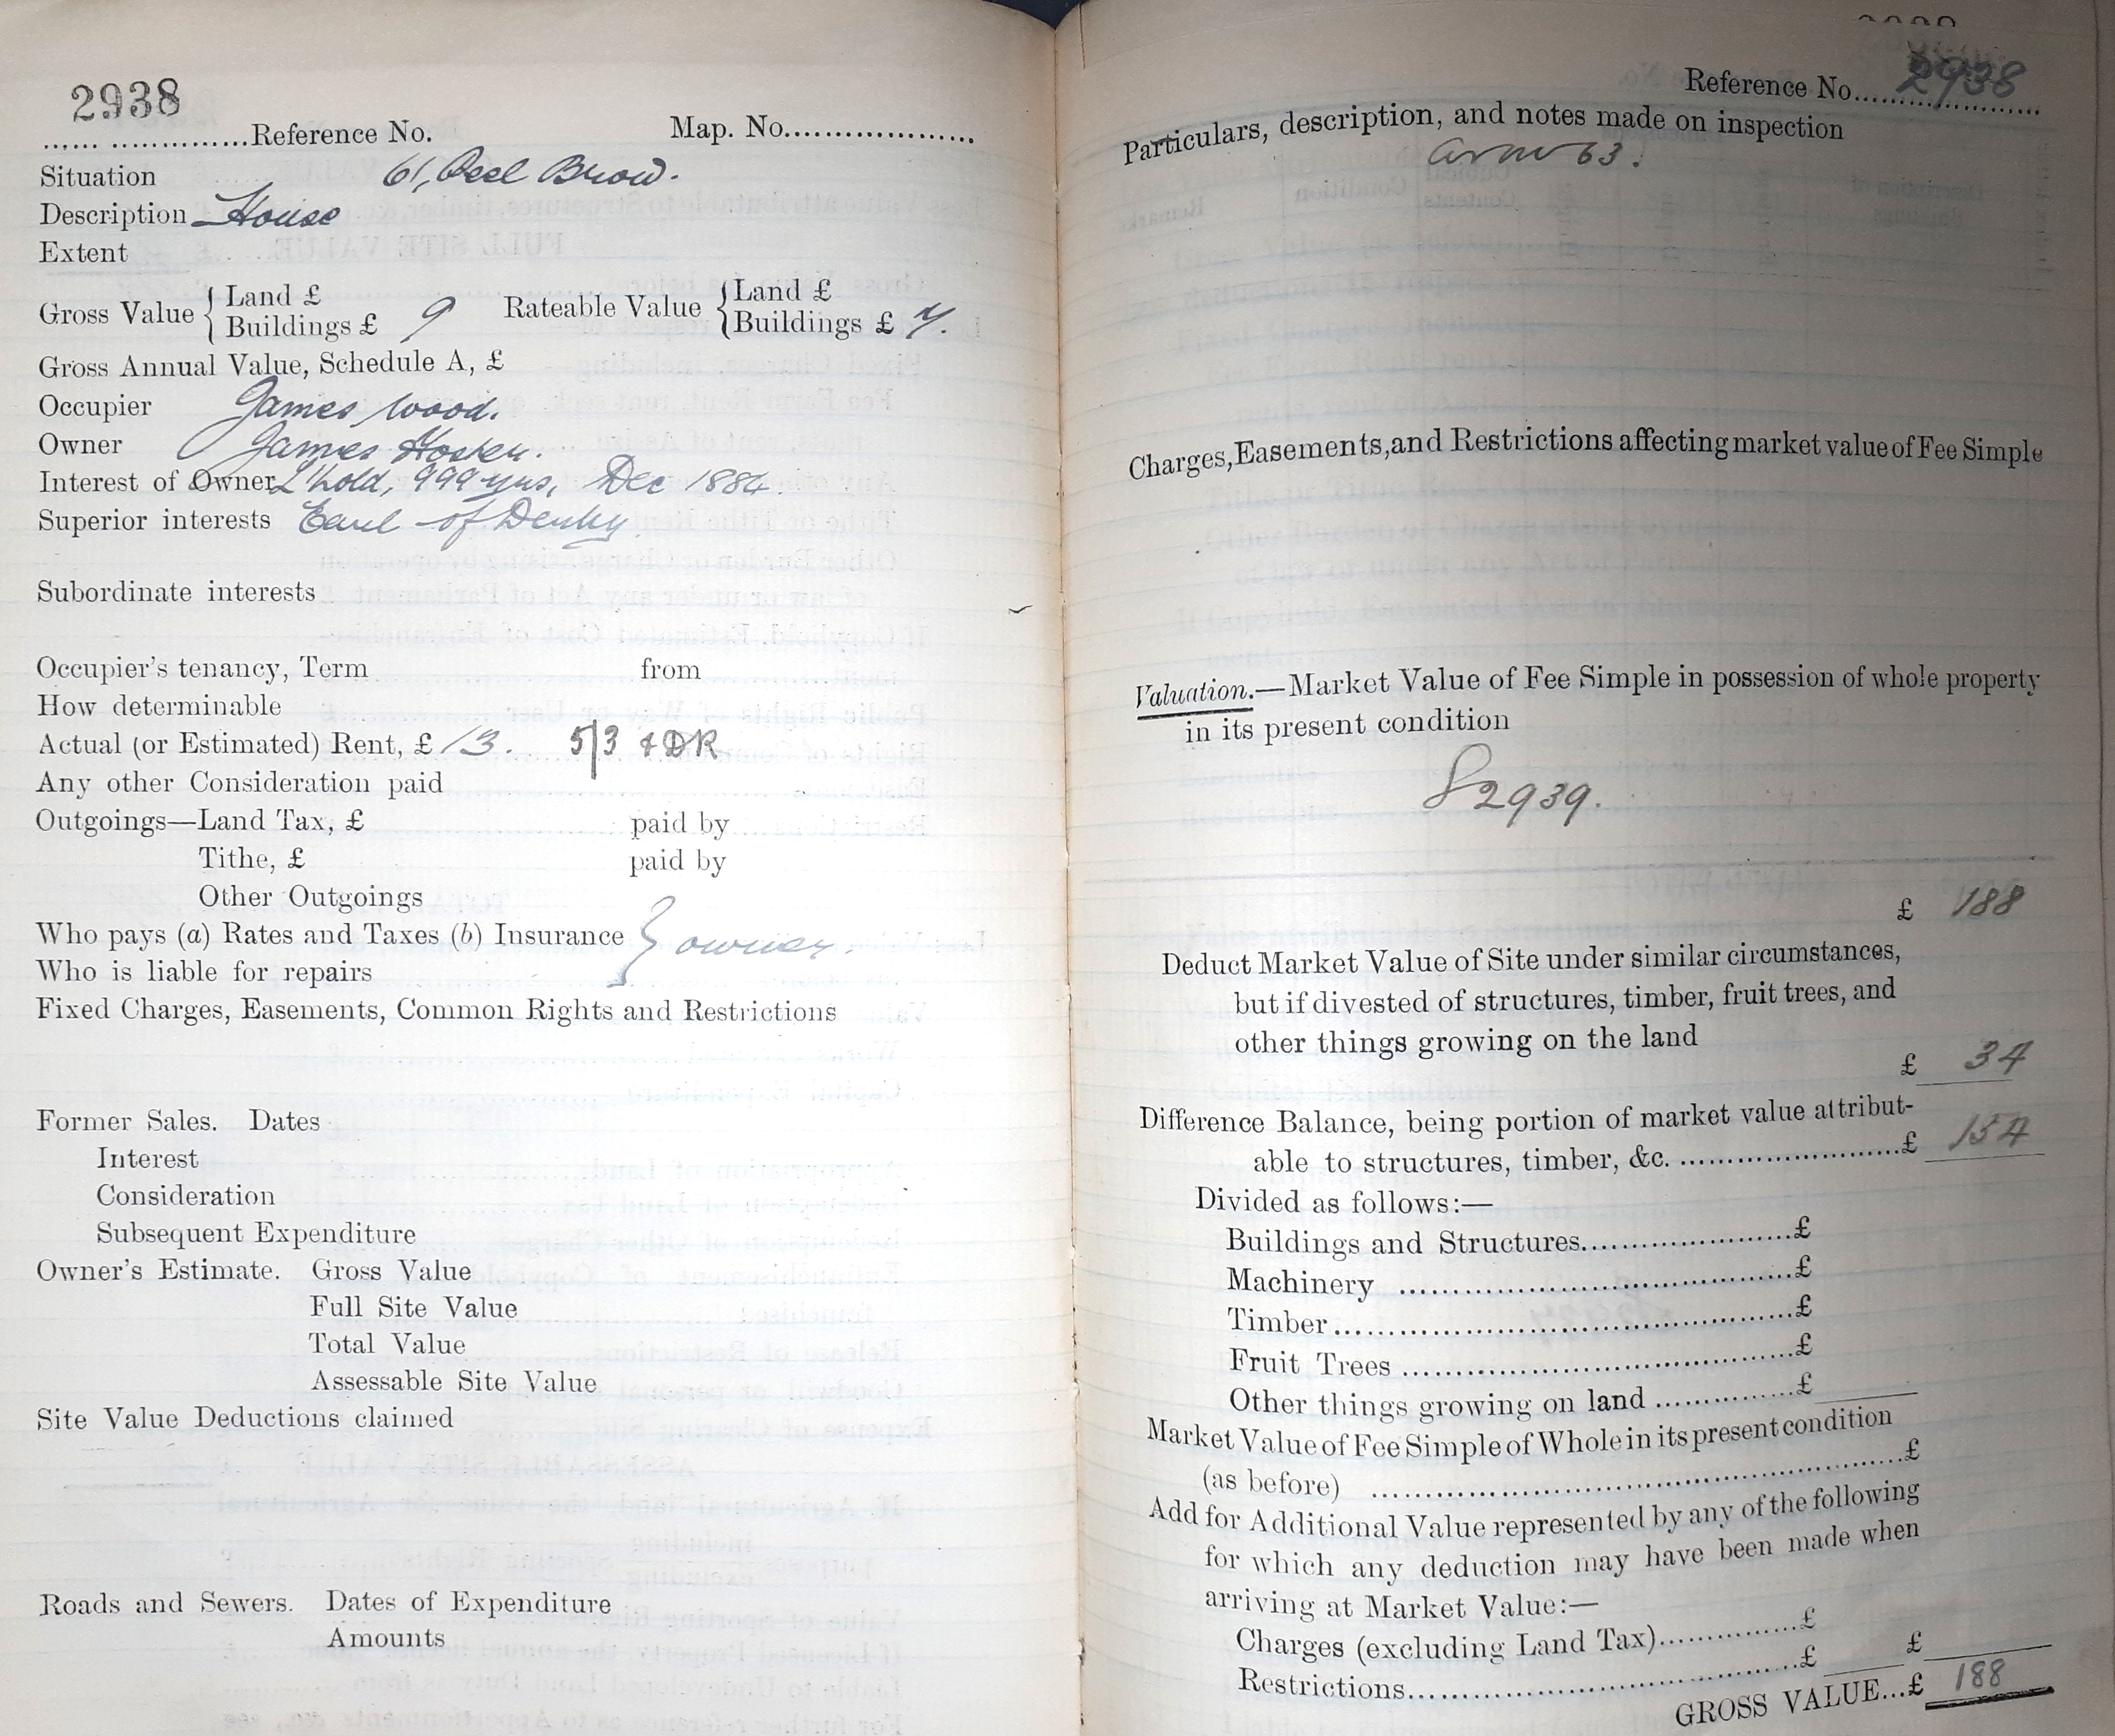 2938
Reference No. Map. No.
Situation 61, Peel Brow.
Description House
Extent
Gross Value { Land £
Buildings £ 9
Rateable Value { Land £
Buildings £ 7.
Gross Annual Value, Schedule A, £
Occupier James Wood.
Owner James
Interest of Owner L'hold, 999 yrs, Dec 1884.
Superior interests Earl of Derby.
Subordinate interests
Occupier's tenancy, Term from
How determinable
Actual (or Estimated) Rent, £ 13. 5/3 & DR
Any other Consideration paid
Outgoings—Land Tax, £ paid by
Tithe, £ paid by
Other Outgoings
Who pays (a) Rates and Taxes (b) Insurance } owner.
Who is liable for repairs
Fixed Charges, Easements, Common Rights and Restrictions
Former Sales. Dates
Interest
Consideration
Subsequent Expenditure
Owner's Estimate. Gross Value
Full Site Value
Total Value
Assessable Site Value
Site Value Deductions claimed
Roads and Sewers. Dates of Expenditure
Amounts
Reference No. 2938
Particulars, description, and notes made on inspection
63.
Charges, Easements, and Restrictions affecting market value of Fee Simple
Valuation.—Market Value of Fee Simple in possession of whole property
in its present condition
2939.
£ 188
Deduct Market Value of Site under similar circumstances,
but if divested of structures, timber, fruit trees, and
other things growing on the land
£ 34
Difference Balance, being portion of market value attribut-
able to structures, timber, &c. £ 154
Divided as follows:—
Buildings and Structures £
Machinery £
Timber £
Fruit Trees £
Other things growing on land £
Market Value of Fee Simple of Whole in its present condition
(as before) £
Add for Additional Value represented by any of the following
for which any deduction may have been made when
arriving at Market Value:—
Charges (excluding Land Tax) £
Restrictions £ £
GROSS VALUE...£ 188